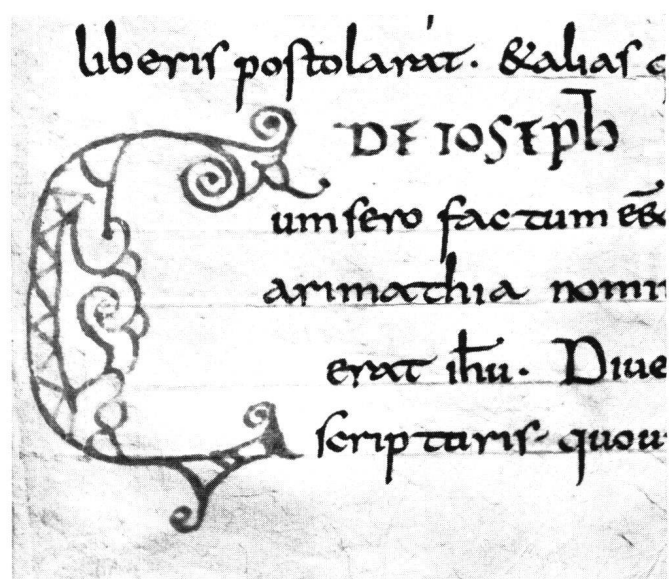 liberis postolarat. &alias
DE IOSEPH
C um sero factum
arimathia nomi
erat ihu. Dive
scripturis. quou